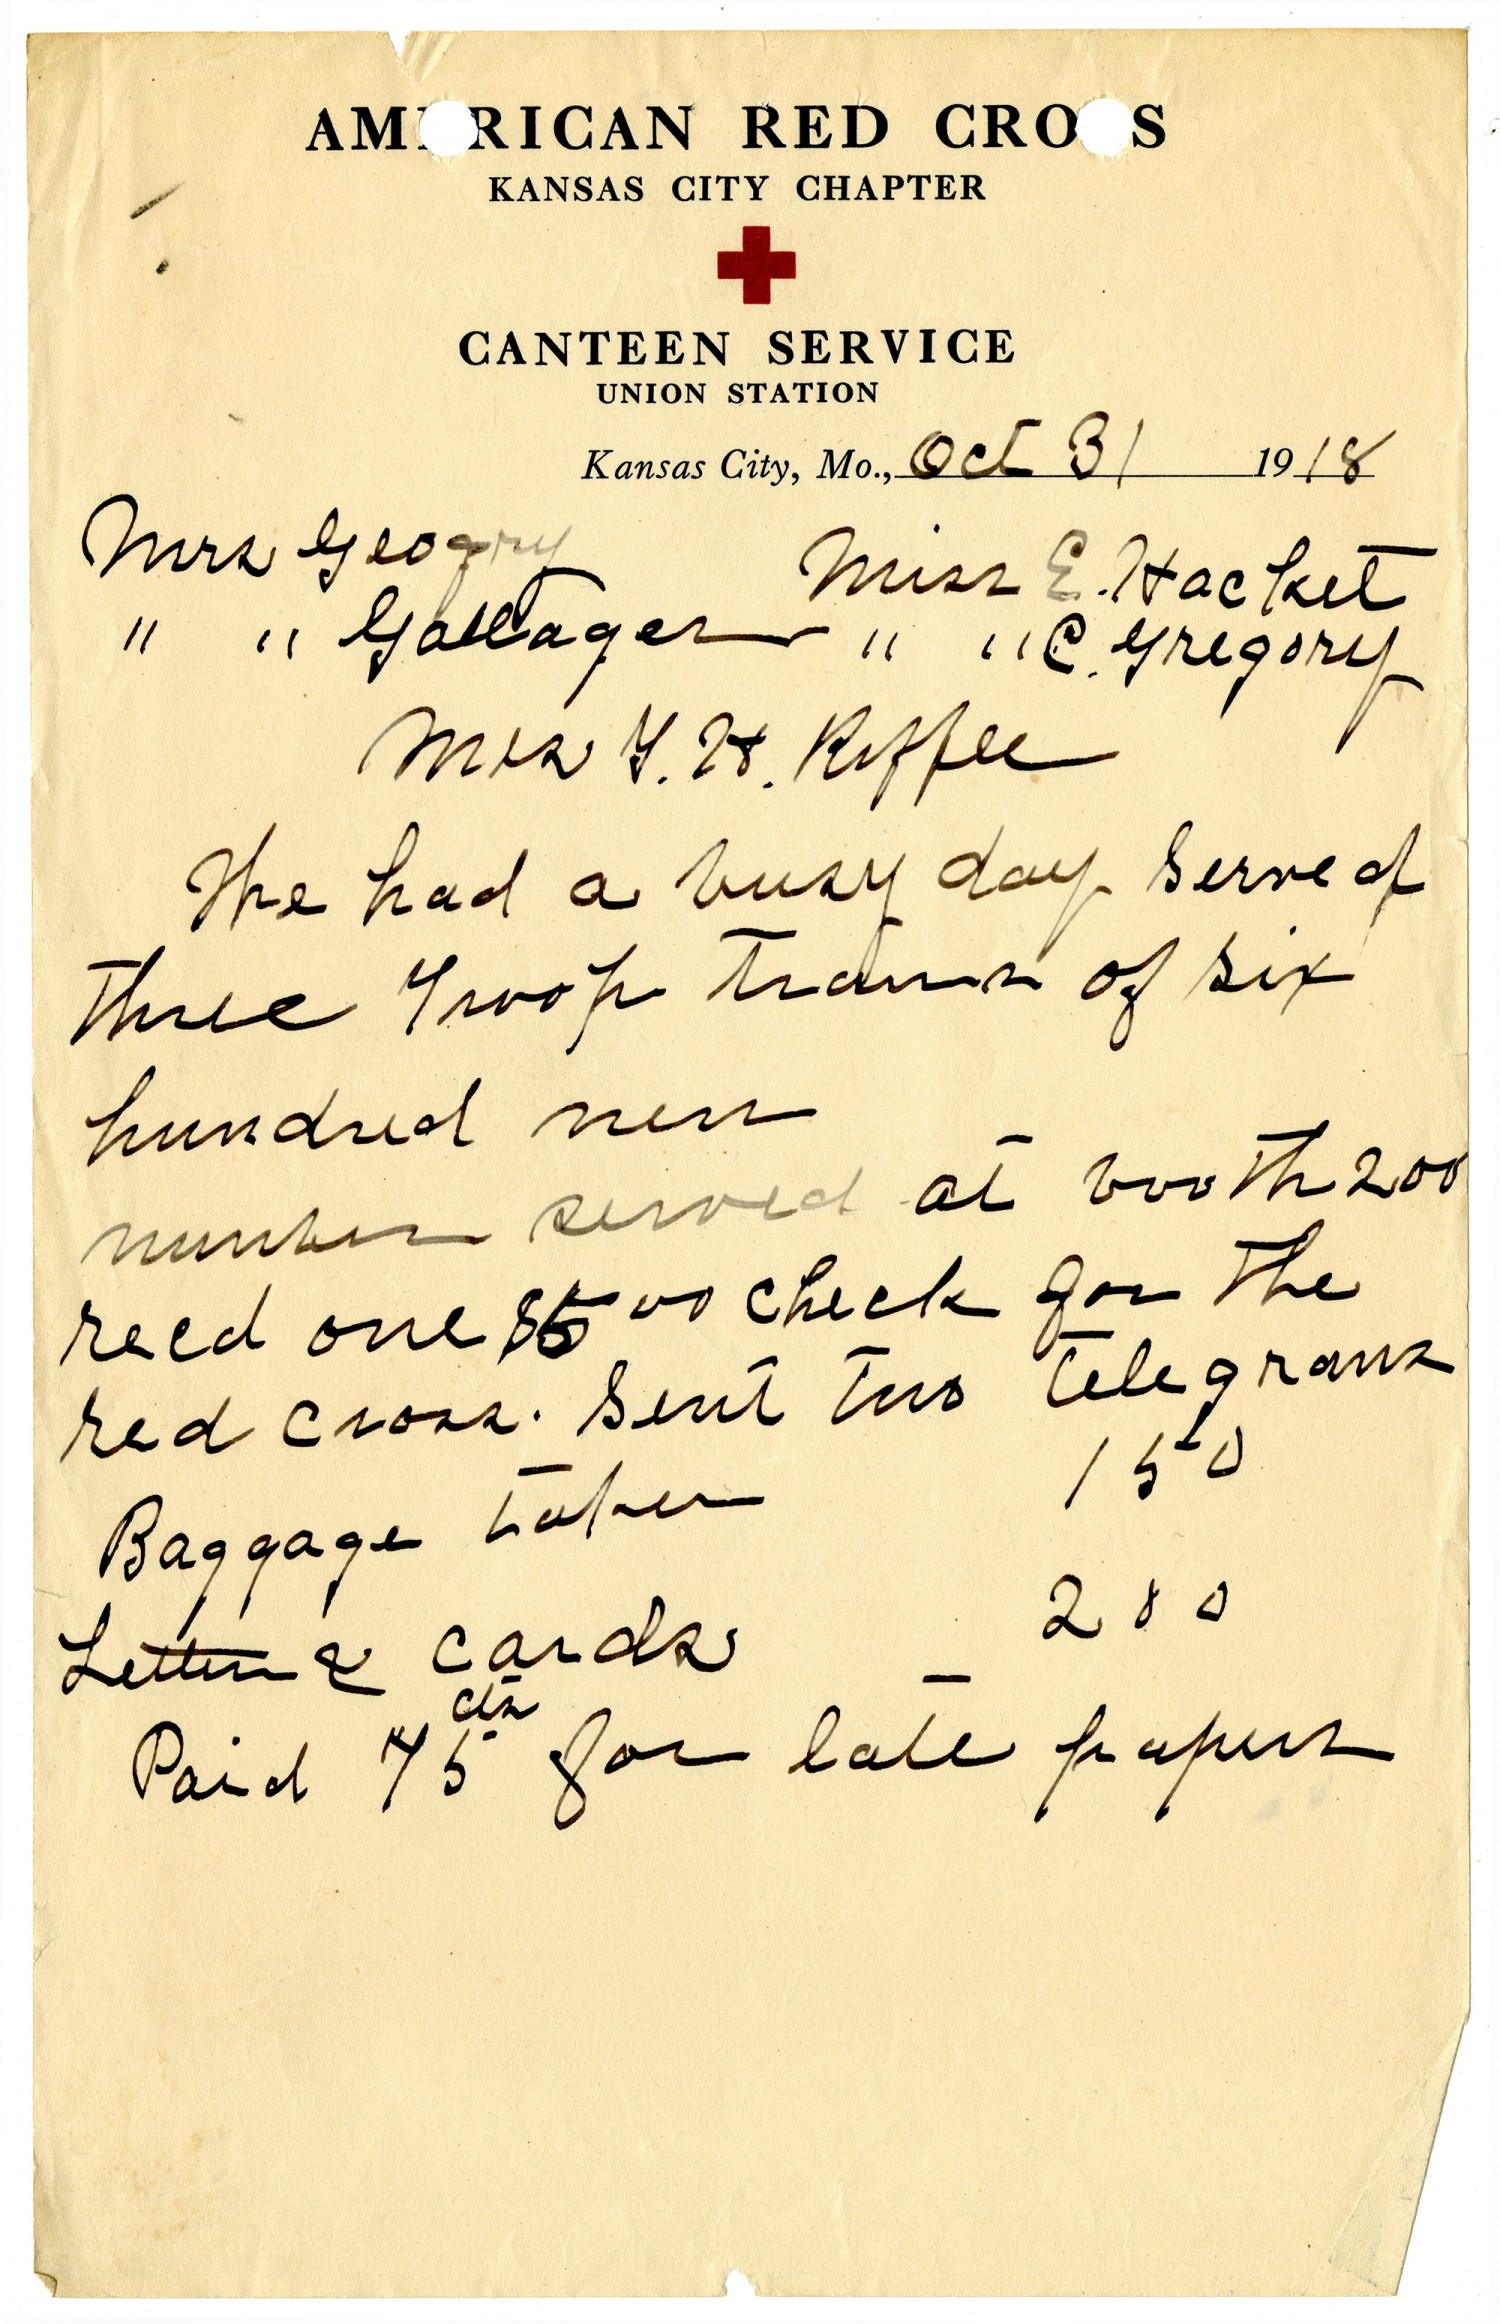 AMERICAN RED CROSS
KANSAS CITY CHAPTER
CANTEEN SERVICE
UNION STATION
Kansas City, Mo., Oct 31 1918
Mrs Geogry Miss E. Hacket
" " Gallager " " C. Gregory
Mrs G. H. Riffle
The had a busy day served
three Troop trains of six
hundred men
number served at booth 200
recd one $5 00 check for the
red cross. Sent two telegrams
Baggage taken 150
Letter & cards 200
Paid 75 cts for late papers